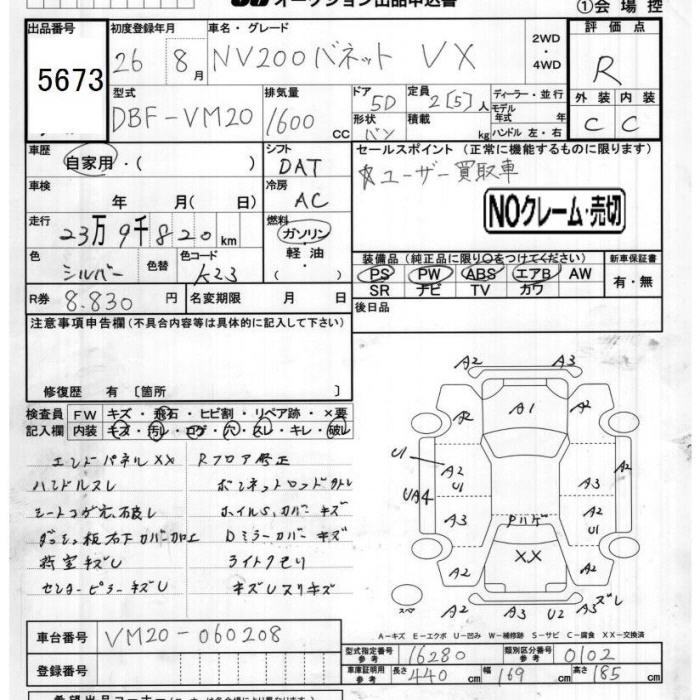 オークション出品申込書 ①会場控
出品番号 初度登録年月 車名・グレード 2WD・4WD 評価点
5673 26 8月 NV200バネット VX R
型式 排気量 ドア 定員 ディーラー・並行 外装 内装
DBF-VM20 1600 CC 5D 2[5]人 モデル年式 年 C C
形状 バン 積載 kg ハンドル 左・右
車歴 自家用・( ) シフト DAT セールスポイント (正常に機能するものに限ります)
ユーザー買取車
車検 年 月( 日) 冷房 AC NOクレーム・売切
走行 23万9千820km 燃料 ガソリン・軽油・( )
色 シルバー 色替 色コード K23 装備品(純正品に限り○をつけてください) 新車保証書
PS PW ABS エアB AW 有・無
SR ナビ TV カワ
R券 8.830円 名変期限 月 日 後日品
注意事項申告欄(不具合内容等は具体的に記入して下さい)
修復歴 有〔箇所 〕
検査員 FW キズ・飛石・ヒビ割・リペア跡・×要
記入欄 内装 キズ・汚レ・コゲ・穴・スレ・キレ・破レ
エンドパネルXX Rフロア修正
ハンドルスレ ボンネットロッド
シートコゲ穴破レ ホイルS,カバーキズ
ダッシュ板右下カバー加工 Dミラーカバーキズ
荷室キズレ ライトクモリ
センターピラーキズレ キズレスリキズ
A2 A3
R A1 A2
U1 A2 U1 A3 A2
UA4 A3 A2 U1
Pハゲ
XX
A2 A2
スペ A2 A3 U2 ズレ
A-キズ E-エクボ U-凹み W-補修跡 S-サビ C-腐食 XX-交換済
車台番号 VM20-060208
型式指定番号 参考 16280 類別区分番号 参考 0102
登録番号 車庫証明用 参考 長さ 440cm 幅 169cm 高さ 185cm